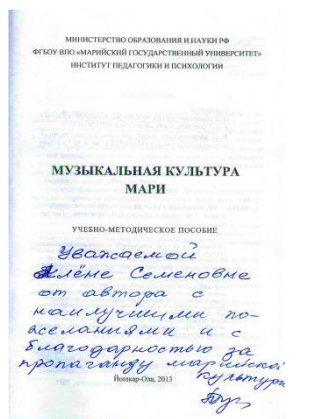 МИНИСТЕРСТВО ОБРАЗОВАНИЯ И НАУКИ РФ
ФГБОУ ВПО «МАРИЙСКИЙ ГОСУДАРСТВЕННЫЙ УНИВЕРСИТЕТ»
ИНСТИТУТ ПЕДАГОГИКИ И ПСИХОЛОГИИ
МУЗЫКАЛЬНАЯ КУЛЬТУРА
МАРИ
УЧЕБНО-МЕТОДИЧЕСКОЕ ПОСОБИЕ
Уважаемой
Алёне Семеновне
от автора с
наилучшими по-
желаниями и с
благодарностью за
пропаганду марийской
культуры
Йошкар-Ола, 2013